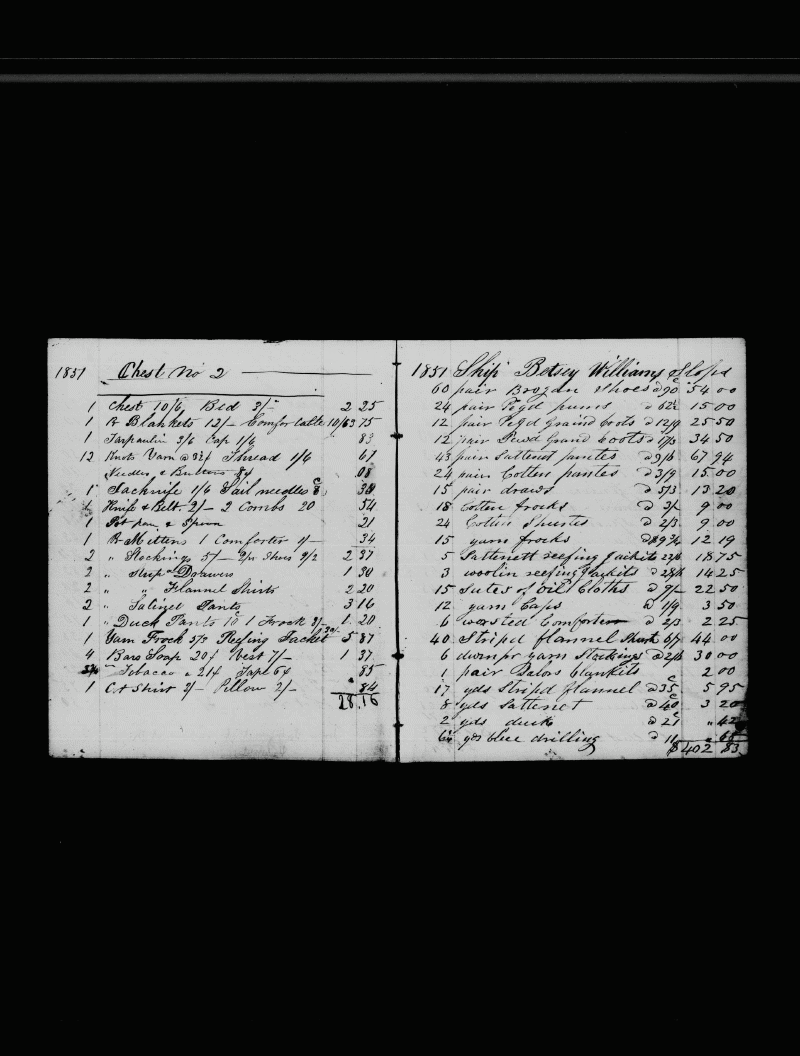 1851 Chest No 2
1 Chest 10/6 Bed 3/- 2 25
1 Pr Blankets 12/- Comfortable 10/6 3 75
1 Tarpaulin 3/6 Cap 1/6 83
12 Knots Yarn @ 3¢ Thread 1/6 67
Needles & Buttons 8¢ 08
1 Jacknife 1/6 Sail needles 8 38
1 Knife & Belt 2/- 2 Combs 20 54
1 Pot pan & Spoon 21
1 Pr Mittens 1 Comforter 1/- 34
2 " Stockings 5/- 2 pr Shoes 9/2 2 37
2 " Drawers 1 30
2 " " Flannel Shirts 2 20
2 " Satinet Pants 3 16
1 " Duck Pants 1 Frock 3/- 1 20
1 Yarn Frock 5/3 Reefing Jacket 5 87
4 Bars Soap 20¢ Vest 7/- 1 37
Tobacco 21¢ Tape 6¢ 85
1 Shirt 3/- Pillow 2/- 84
28.16
1851 Ship Betsey Williams Slops
60 pair Brogan Shoes @ 90 54 00
24 pair Pegd pums @ 62½ 15 00
12 pair Pegd Graind boots @ 12/9 25 50
12 pair Sewd Graind boots @ 17/3 34 50
43 pair Sattenet pantes @ 9/6 67 94
24 pair Cotten pantes @ 3/9 15 00
15 pair draws @ 5/3 13 20
18 Cotten frocks @ 3/- 9 00
24 Cotten Shurtes @ 2/3 9 00
15 yarn frocks 12 19
5 Sattenett reefing Jackits 22/6 18 75
3 woolin reefing Jackits @ 28/6 14 25
15 Sutes of Oil Cloths @ 9/- 22 50
12 yarn Caps @ 1/9 3 50
6 worsted Comforters @ 2/3 2 25
40 Stripd flannel Shurts 6/7 44 00
6 dwzn pr yarn Stockings @ 2/6 30 00
1 pair blankits 2 00
17 yds Stripd flannel @ 35 5 95
8 yds Sattenet @ 40 3 20
2 yds duck @ 21 " 42
6¼ yds blue drilling @ 11 " 68
$402 83